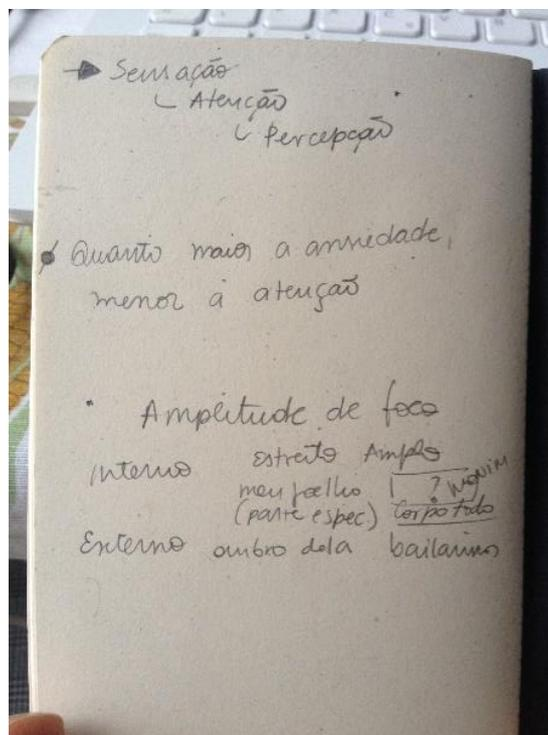 → Sensação
└ Atenção
└ Percepção
Quanto maior a ansiedade,
menor a atenção
• Amplitude de foco
Estreito Amplo
Interno meu joelho ?
(parte espec) Corpo todo
Externo ombro dela bailarinos